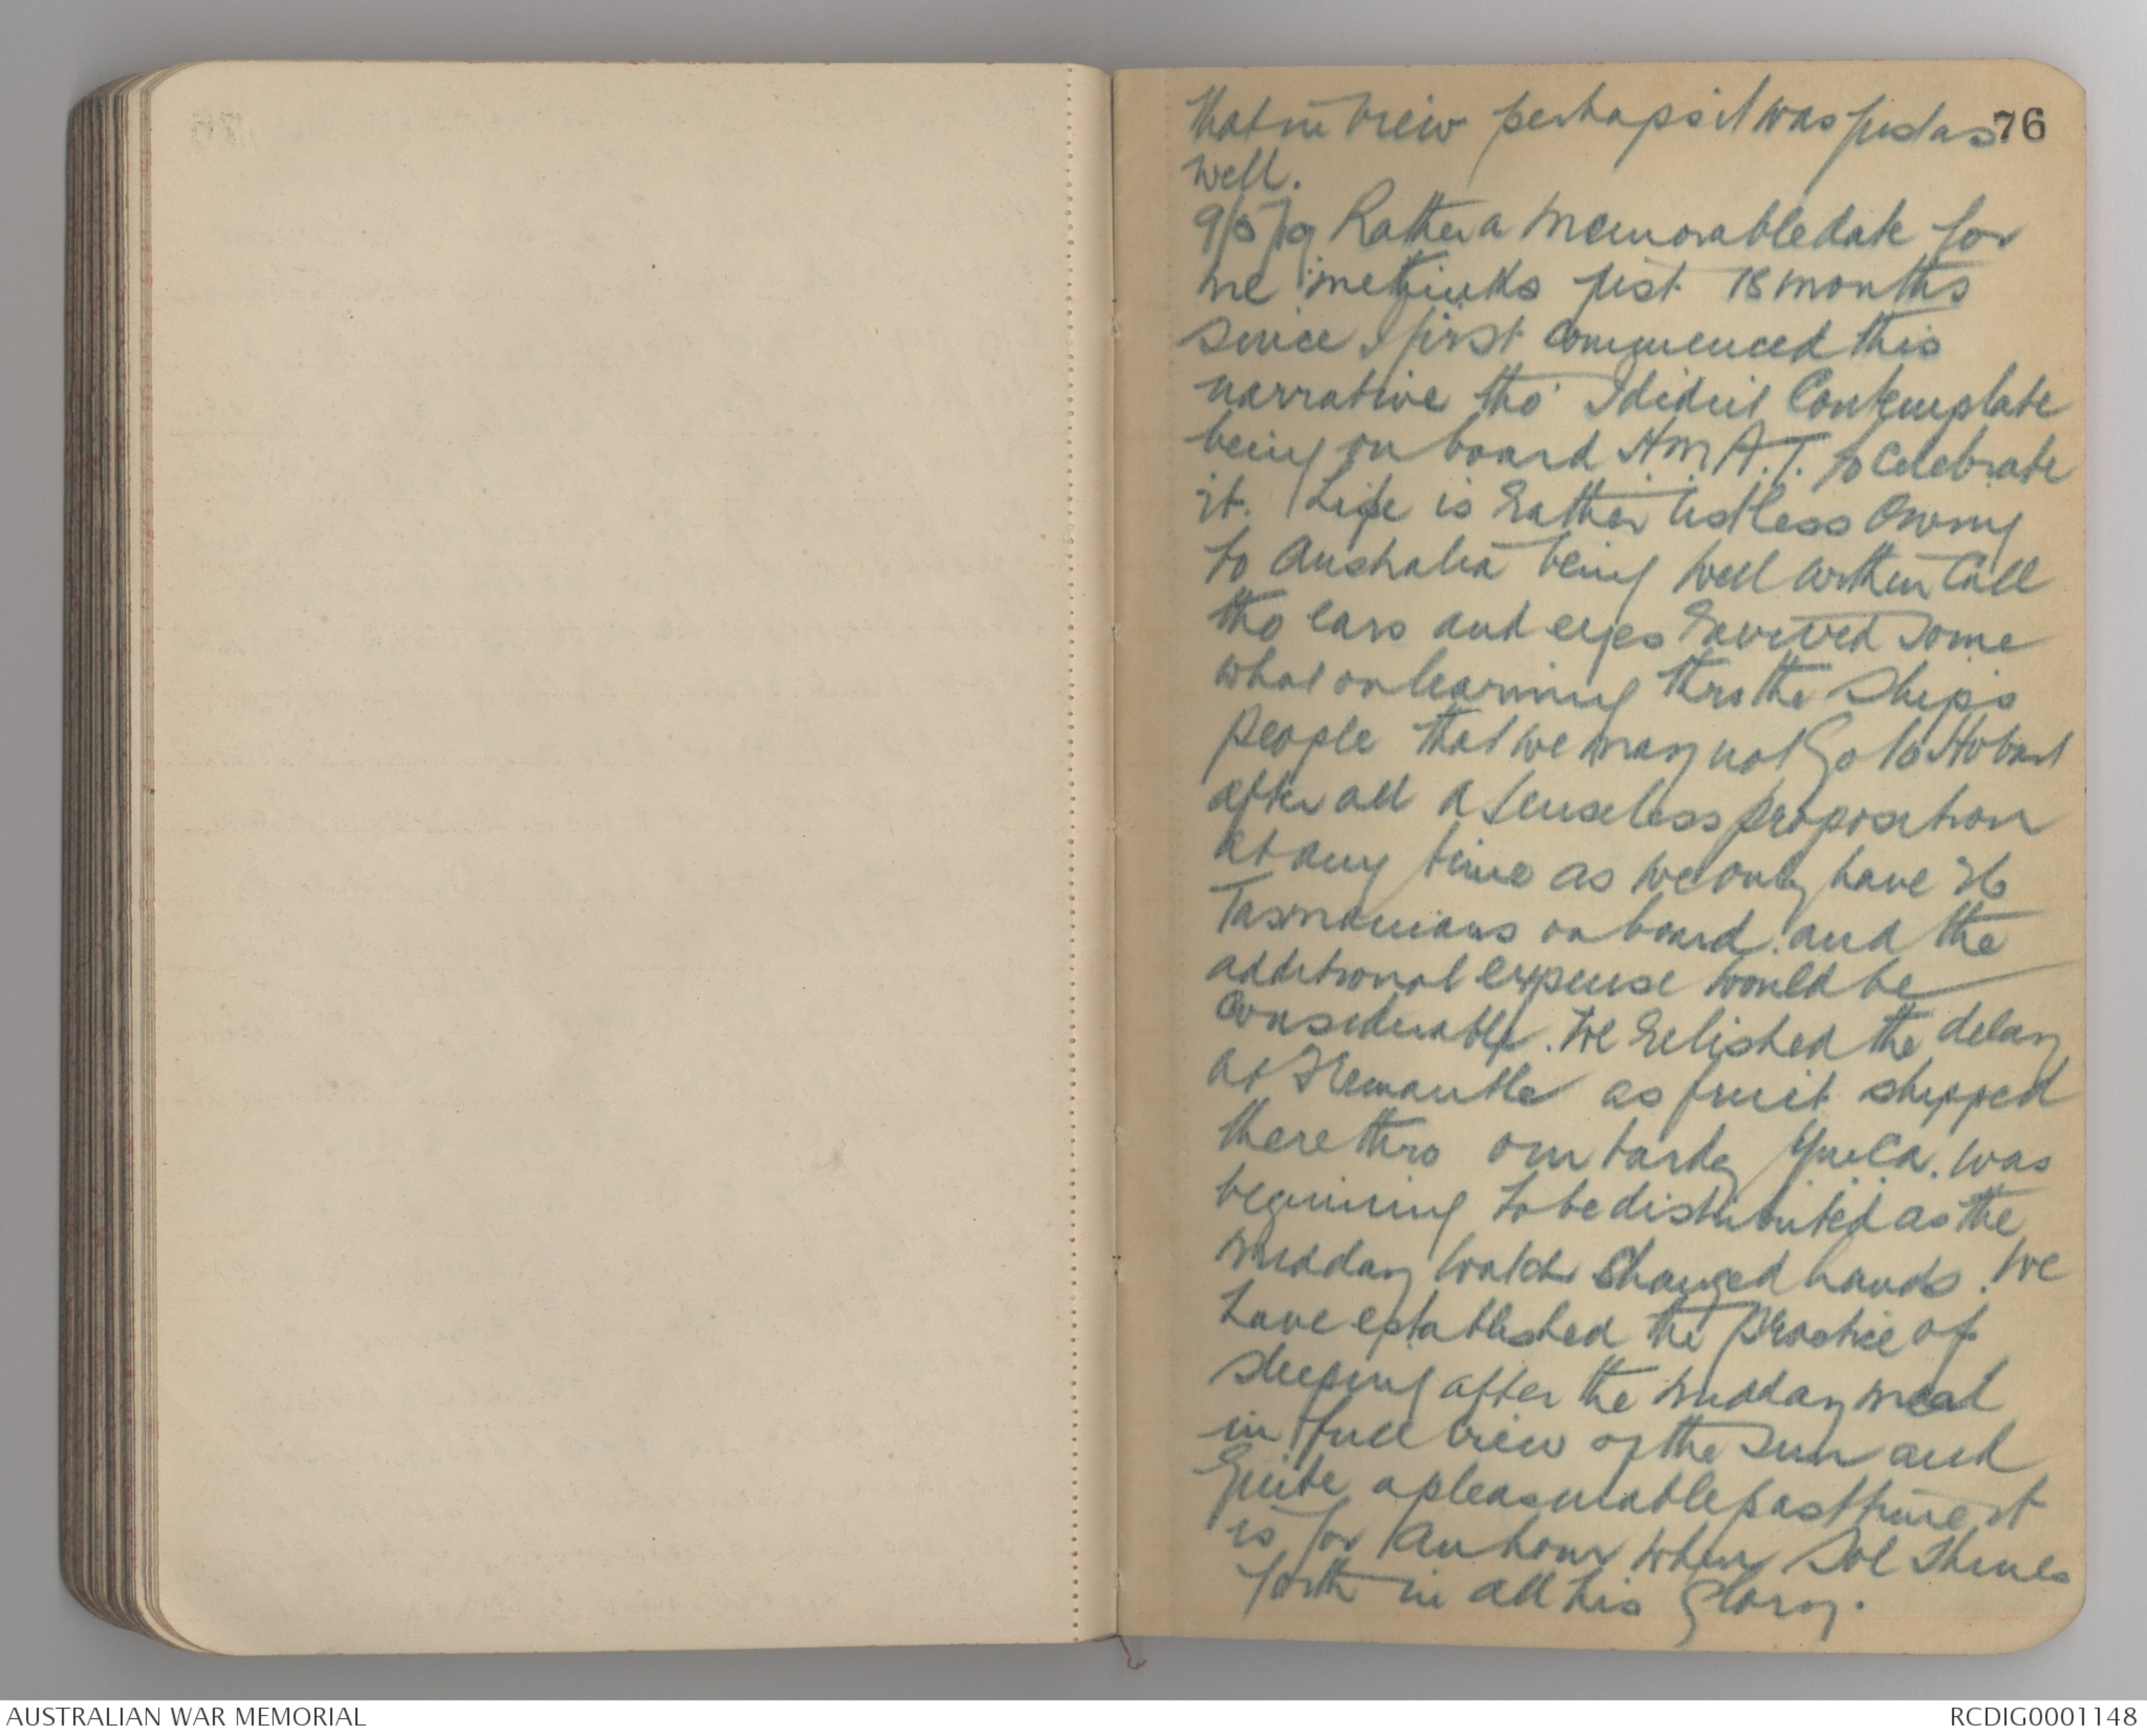 76
that in view perhaps it was just as
well.
9/5/19 Rather a memorable date for
me methinks just 18 months
since I first commenced this
narrative tho' I didnt Contemplate
being on board H.M.A.T. to celebrate
it. Life is rather listless owing
to Australia being well within Call
tho ears and eyes revived some
what on learning thro the Ships
people that we may not go to Hobart
after all a senseless proposition
at any time as we only have 26
Tasmanians on board. and the
additional expense would be
considerable. We relished the delay
at Fremantle as fruit shipped
there thro our tardy was
beginning to be distributed as the
midday watch changed hands. We
have established the practice of
sleeping after the midday meal
in full view of the sun and
quite a pleasurable pasttime it
is for an hour when Sol shines
forth in all his glory.
AUSTRALIAN WAR MEMORIAL
RCDIG0001148